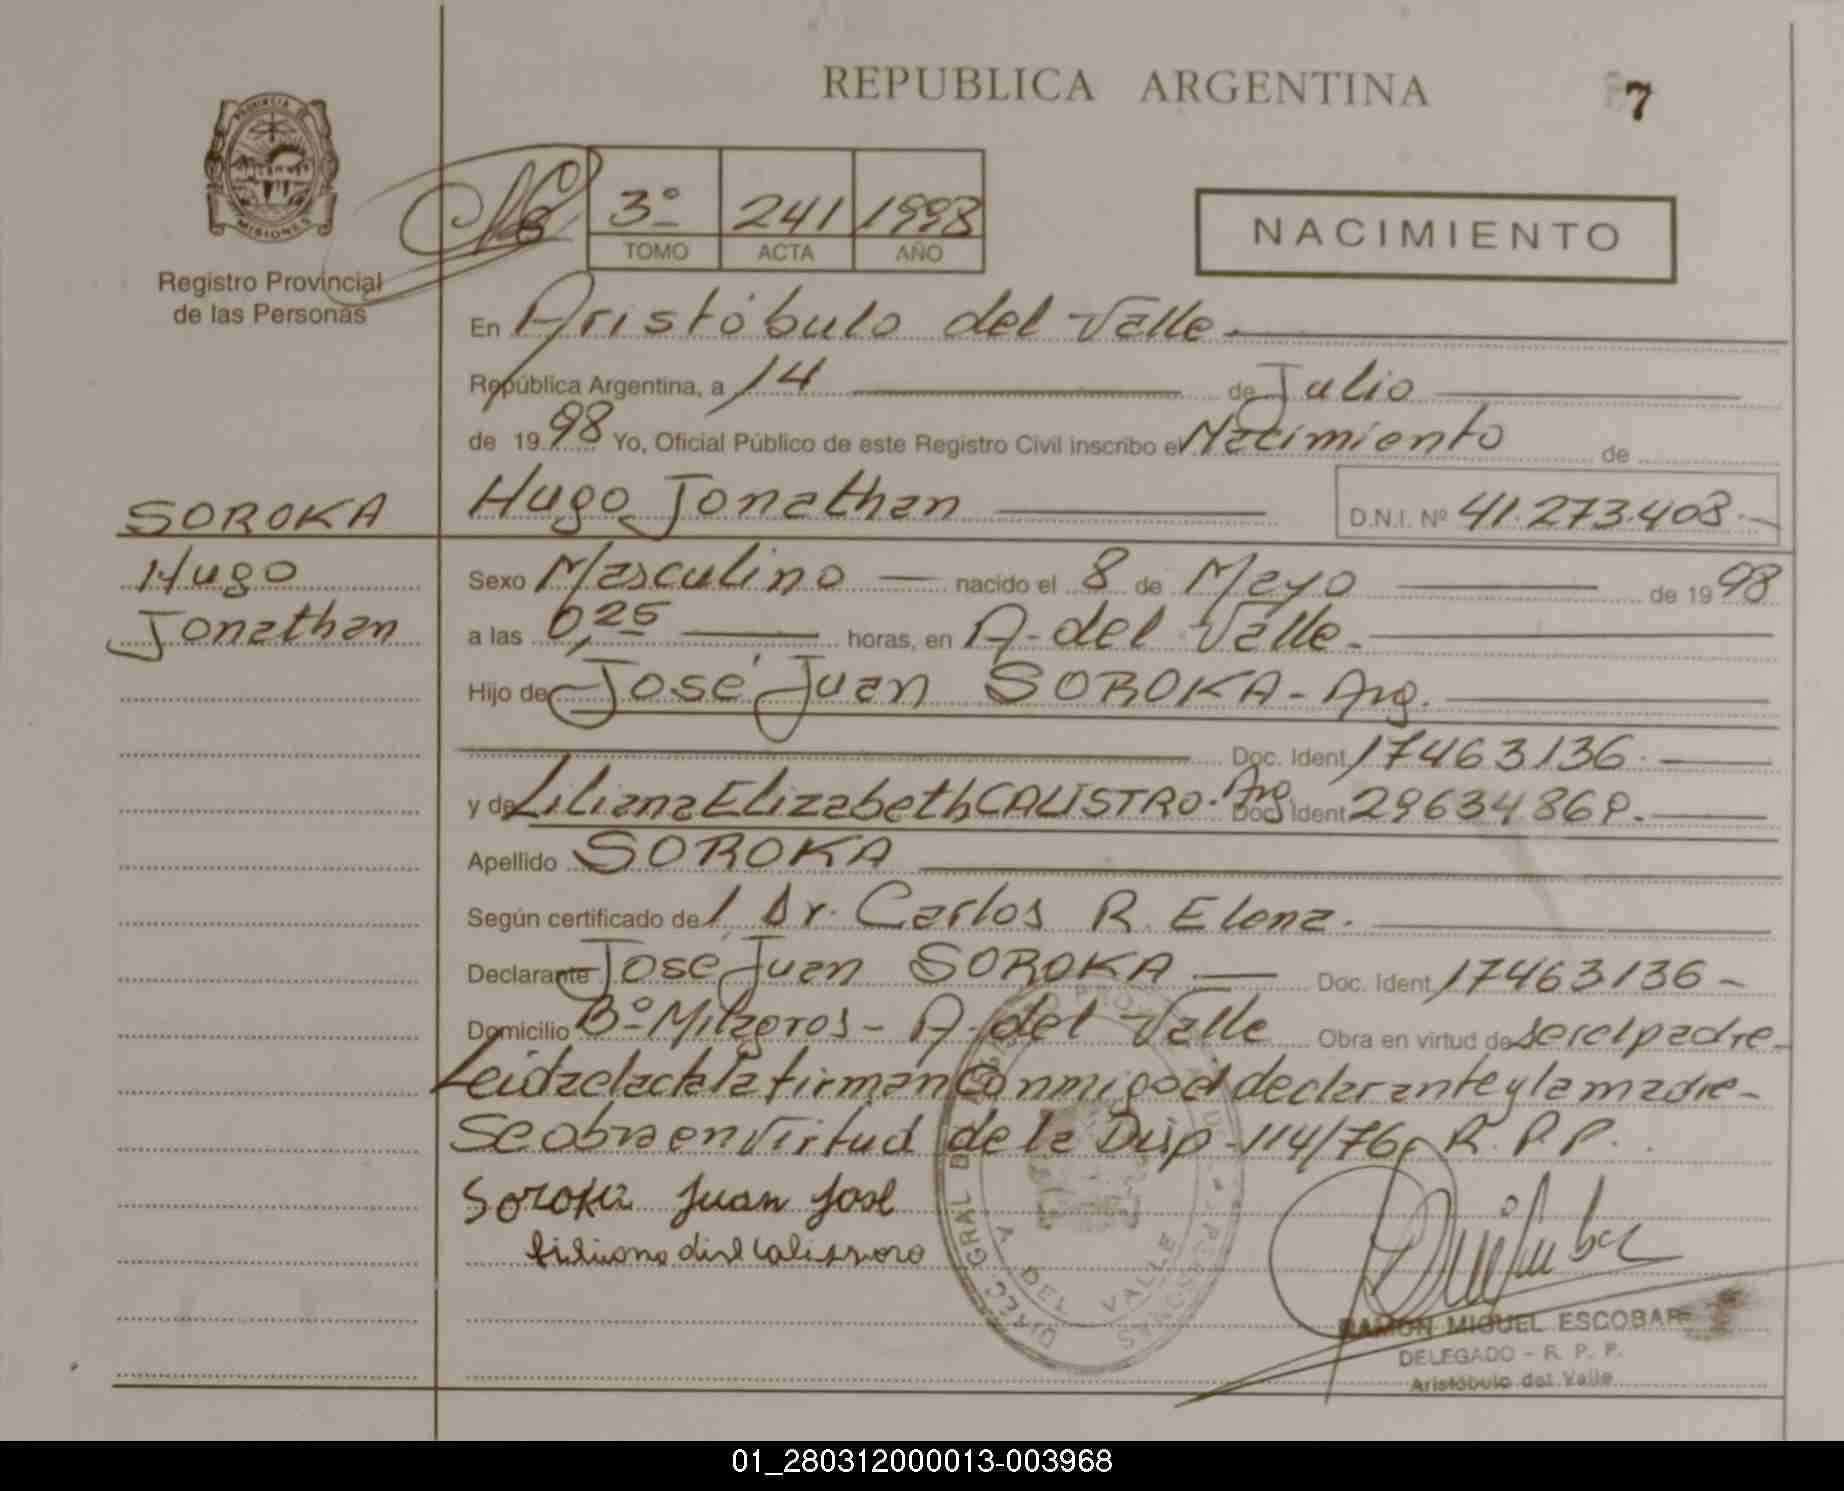 REPUBLICA ARGENTINA
7
PROVINCIA DE
MISIONES
Registro Provincial
de las Personas
3º 241 1998
TOMO ACTA AÑO
NACIMIENTO
En Aristóbulo del Valle
República Argentina, a 14 de Julio
de 1998 Yo, Oficial Público de este Registro Civil inscribo el Nacimiento de
SOROKA
Hugo Jonathan D.N.I. Nº 41.273.408.-
Hugo
Jonathan
Sexo Masculino nacido el 8 de Mayo de 1998
a las 0,25 horas, en A. del Valle.
Hijo de José Juan SOROKA - Arg.
Doc. Ident. 17463136.
y de Liliana Elizabeth CALISTRO. Arg Doc. Ident. 29634868.
Apellido SOROKA
Según certificado de 1, Dr. Carlos R. Elena.
Declarante José Juan SOROKA Doc. Ident. 17463136 -
Domicilio Bº Milagros - A. del Valle Obra en virtud de ser el padre -
Leida el acta la firman conmigo el declarante y la madre -
Se obra en virtud de la Disp. 114/76 R.P.P.
Soroka Juan José
DIREC. GRAL
DEL VALLE
RAMON MIGUEL ESCOBAR
DELEGADO - R. P. P.
Aristóbulo del Valle
01_280312000013-003968